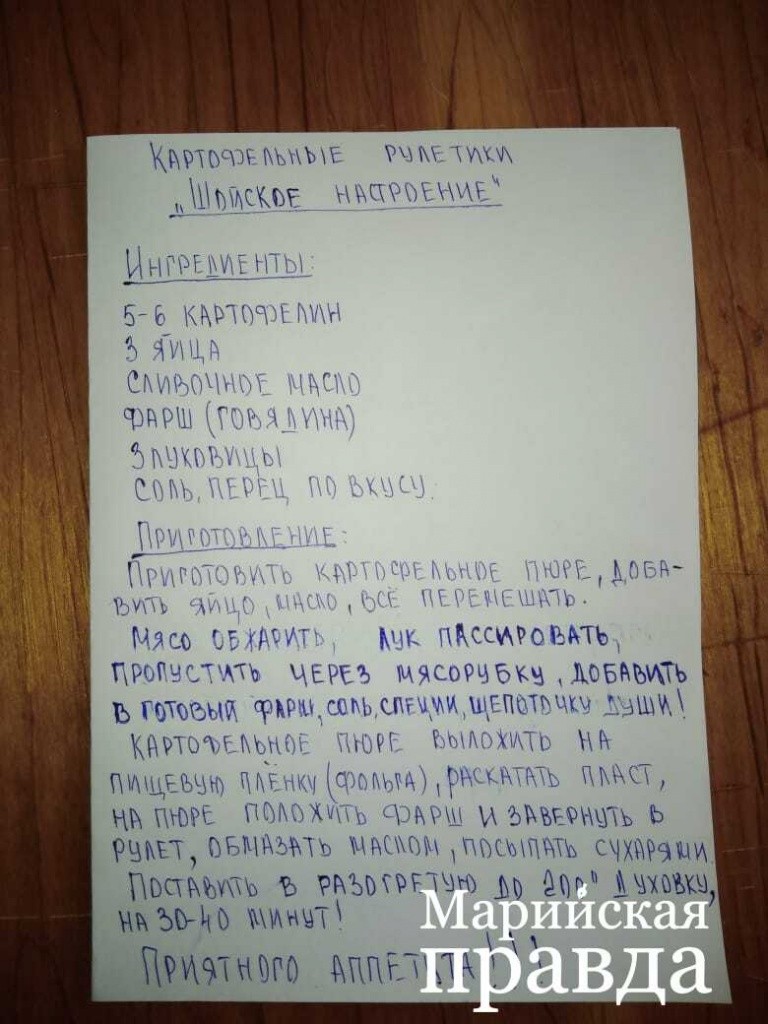 Картофельные рулетики
„Шойское настроение"
Ингредиенты:
5-6 картофелин
3 яйца
сливочное масло
фарш (говядина)
3 луковицы
соль, перец по вкусу.
Приготовление:
Приготовить картофельное пюре, доба-
вить яйцо, масло, всё перемешать.
Мясо обжарить, лук пассировать,
пропустить через мясорубку, добавить
в готовый фарш, соль, специи, щепоточку души!
Картофельное пюре выложить на
пищевую плёнку (фольга), раскатать пласт,
на пюре положить фарш и завернуть в
рулет, обмазать маслом, посыпать сухарями.
Поставить в разогретую до 200° духовку,
на 30-40 минут!
Приятного аппетита!!!
Марийская
правда